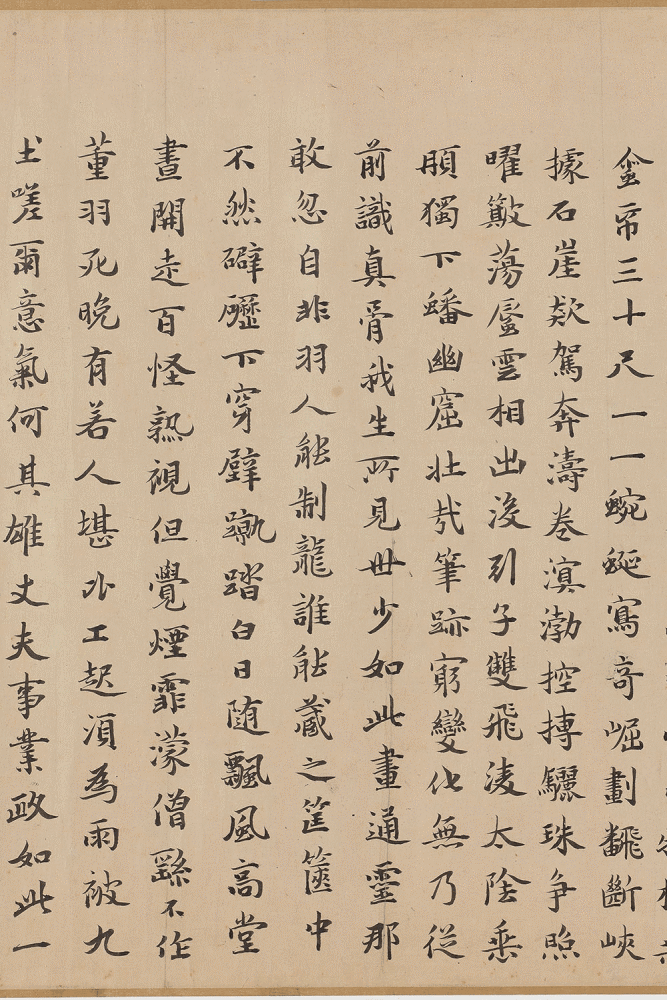 帋三十尺一一蜿蜒寫奇崛劃飜斷峽
據石崖欻駕奔濤卷溟渤控摶驪珠爭照
曜簸蕩蜃雲相出沒引子雙飛淩太陰垂
頋獨下蟠幽窟壯哉筆跡窮變化無乃從
前識真骨我生所見世少如此畫通靈那
敢忽自非羽人能制龍誰能藏之筐篋中
不然礔礰下穿壁蹴踏白日随飄風高堂
晝開走百怪熟視但覺煙霏濛僧繇不作
董羽死晚有若人堪工起須為雨被九
土嗟爾意氣何其雄丈夫事業政如此一